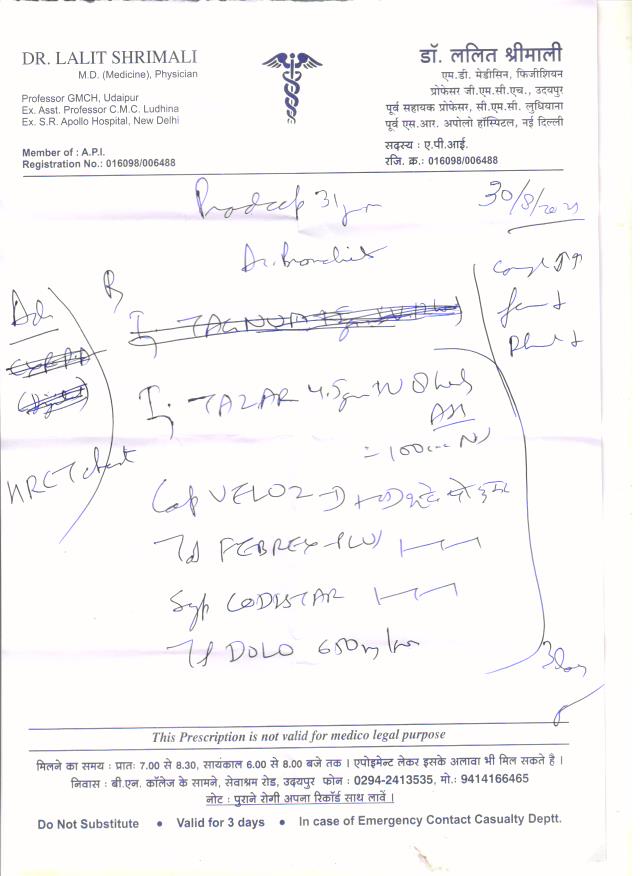 DR. LALIT SHRIMALI
M.D. (Medicine), Physician
Professor GMCH, Udaipur
Ex. Asst. Professor C.M.C. Ludhina
Ex. S.R. Apollo Hospital, New Delhi
Member of : A.P.I.
Registration No.: 016098/006488
डॉ. ललित श्रीमाली
एम.डी. मेडीसिन, फिजीशियन
प्रोफेसर जी.एम.सी.एच., उदयपुर
पूर्व सहायक प्रोफेसर, सी.एम.सी. लुधियाना
पूर्व एस.आर. अपोलो हॉस्पिटल, नई दिल्ली
सदस्य : ए.पी.आई.
रजि. क्र.: 016098/006488
Pradeep 31 yr
30/8/2021
Ac. Bronchitis
Adv
HRCT chest
TAZAR 4.5gm IV
100 NS
Cap VELOZ-D
FEBREX-PLUS
Syp CODISTAR
DOLO 650mg
3 day
This Prescription is not valid for medico legal purpose
मिलने का समय : प्रातः 7.00 से 8.30, सायंकाल 6.00 से 8.00 बजे तक । एपोइमेन्ट लेकर इसके अलावा भी मिल सकते है ।
निवास : बी.एन. कॉलेज के सामने, सेवाश्रम रोड, उदयपुर फोन : 0294-2413535, मो.: 9414166465
नोट : पुराने रोगी अपना रिकॉर्ड साथ लावें ।
Do Not Substitute • Valid for 3 days • In case of Emergency Contact Casualty Deptt.